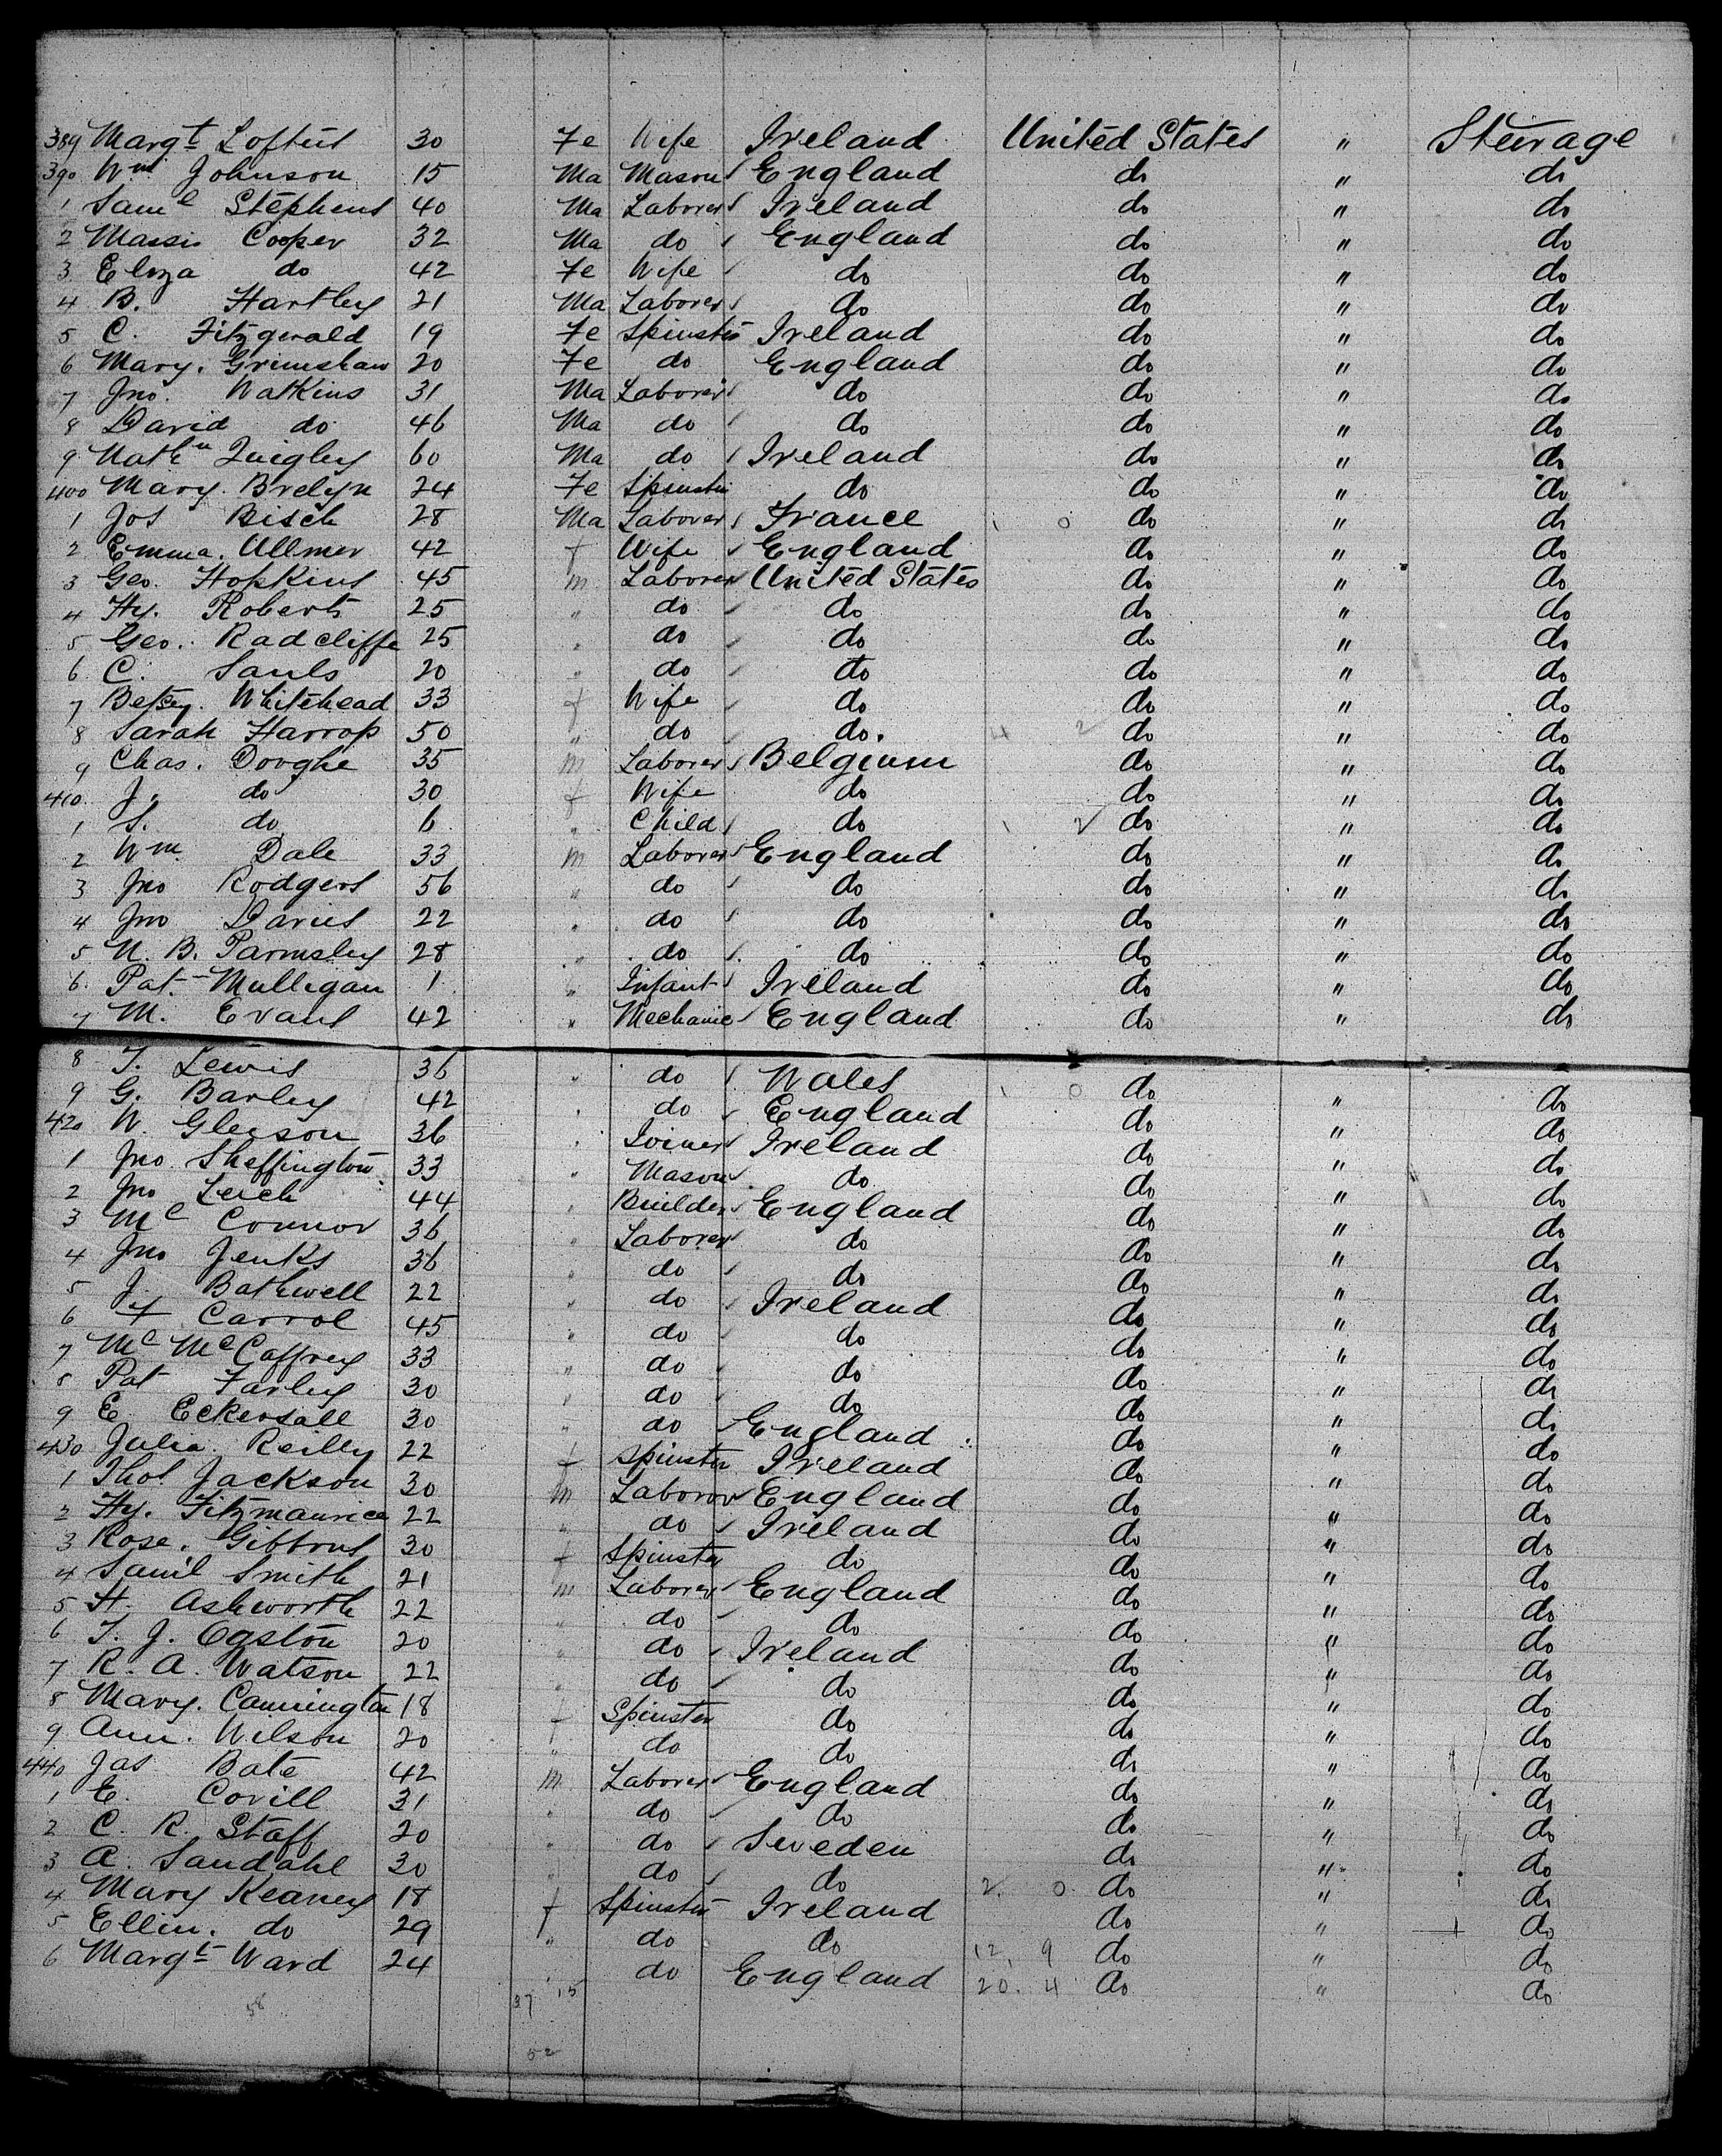 389 Margt Loftus 30 Fe Wife Ireland United States " Steerage
390 Wm Johnson 15 Ma Mason England do " do
1 Saml Stephens 40 Ma Laborer Ireland do " do
2 Massis Cooper 32 Ma do England do " do
3 Eliza do 42 Fe Wife do do " do
4 B. Hartley 21 Ma Laborer do do " do
5 C. Fitzgerald 19 Fe Spinster Ireland do " do
6 Mary. Grimshaw 20 Fe do England do " do
7 Jno. Watkins 31 Ma Laborer do do " do
8 David do 46 Ma do do do " do
9 Quigley 60 Ma do Ireland do " do
400 Mary. Brelyn 24 Fe Spinster do do " do
1 Jos Bisch 28 Ma Laborer France 1 0 do " do
2 Emma. Ullmer 42 f Wife England do " do
3 Geo. Hopkins 45 m Laborer United States do " do
4 Hy. Roberts 25 " do do do " do
5 Geo. Radcliffe 25 " do do do " do
6 C. Sauls 20 " do do do " do
7 Betsy. Whitehead 33 f Wife do do " do
8 Sarah Harrop 50 " do do. 4 2 do " do
9 Chas. Dooghe 35 m Laborer Belgium do " do
410. J. do 30 f Wife do do " do
1 S. do 6 " Child do 1 2 do " do
2 Wm. Dale 33 m Laborer England do " do
3 Jno Rodgers 56 " do do do " do
4 Jno Davies 22 " do do do " do
5 N. B. Parmsley 28 " do do do " do
6. Pat. Mulligan 1 " Infant Ireland do " do
7 M. Evans 42 " Mechanic England do " do
8 T. Lewis 36 " do Wales 1 0 do " do
9 G. Barley 42 " do England do " do
420 W. Gleeson 36 " Joiner Ireland do " do
1 Jno. Sheffington 33 " Mason do do " do
2 Jno Leich 44 " Builder England do " do
3 Mc Connor 36 " Laborer do do " do
4 Jno Jenks 36 " do do do " do
5 J. Bathwell 22 " do Ireland do " do
6 F Carrol 45 " do do do " do
7 Mc McCaffrey 33 " do do do " do
8 Pat Farley 30 " do do do " do
9 E Eckersall 30 " do England do " do
430 Julia. Reilly 22 f Spinster Ireland do " do
1 Thos Jackson 30 m Laborer England do " do
2 Hy. Fitzmaurice 22 " do Ireland do " do
3 Rose. Gibbons 30 f Spinster do do " do
4 Saml Smith 21 m Laborer England do " do
5 H. Ashworth 22 " do do do " do
6 T. J. Ogston 20 " do Ireland do " do
7 R. A. Watson 22 " do do do " do
8 Mary. Cannington 18 f Spinster do do " do
9 Ann. Wilson 20 " do do do " do
440 Jas Bate 42 m Laborer England do " do
1 E. Covill 31 " do do do " do
2 C. R. Staff 20 " do Sweden do " do
3 A. Sandahl 30 " do do 2. 0 do " do
4 Mary Keaney 18 f Spinster Ireland do " do
5 Ellin. do 29 " do do 12. 9 do " do
6 Margt Ward 24 " do England 20. 4 do " do
58 37 15
52